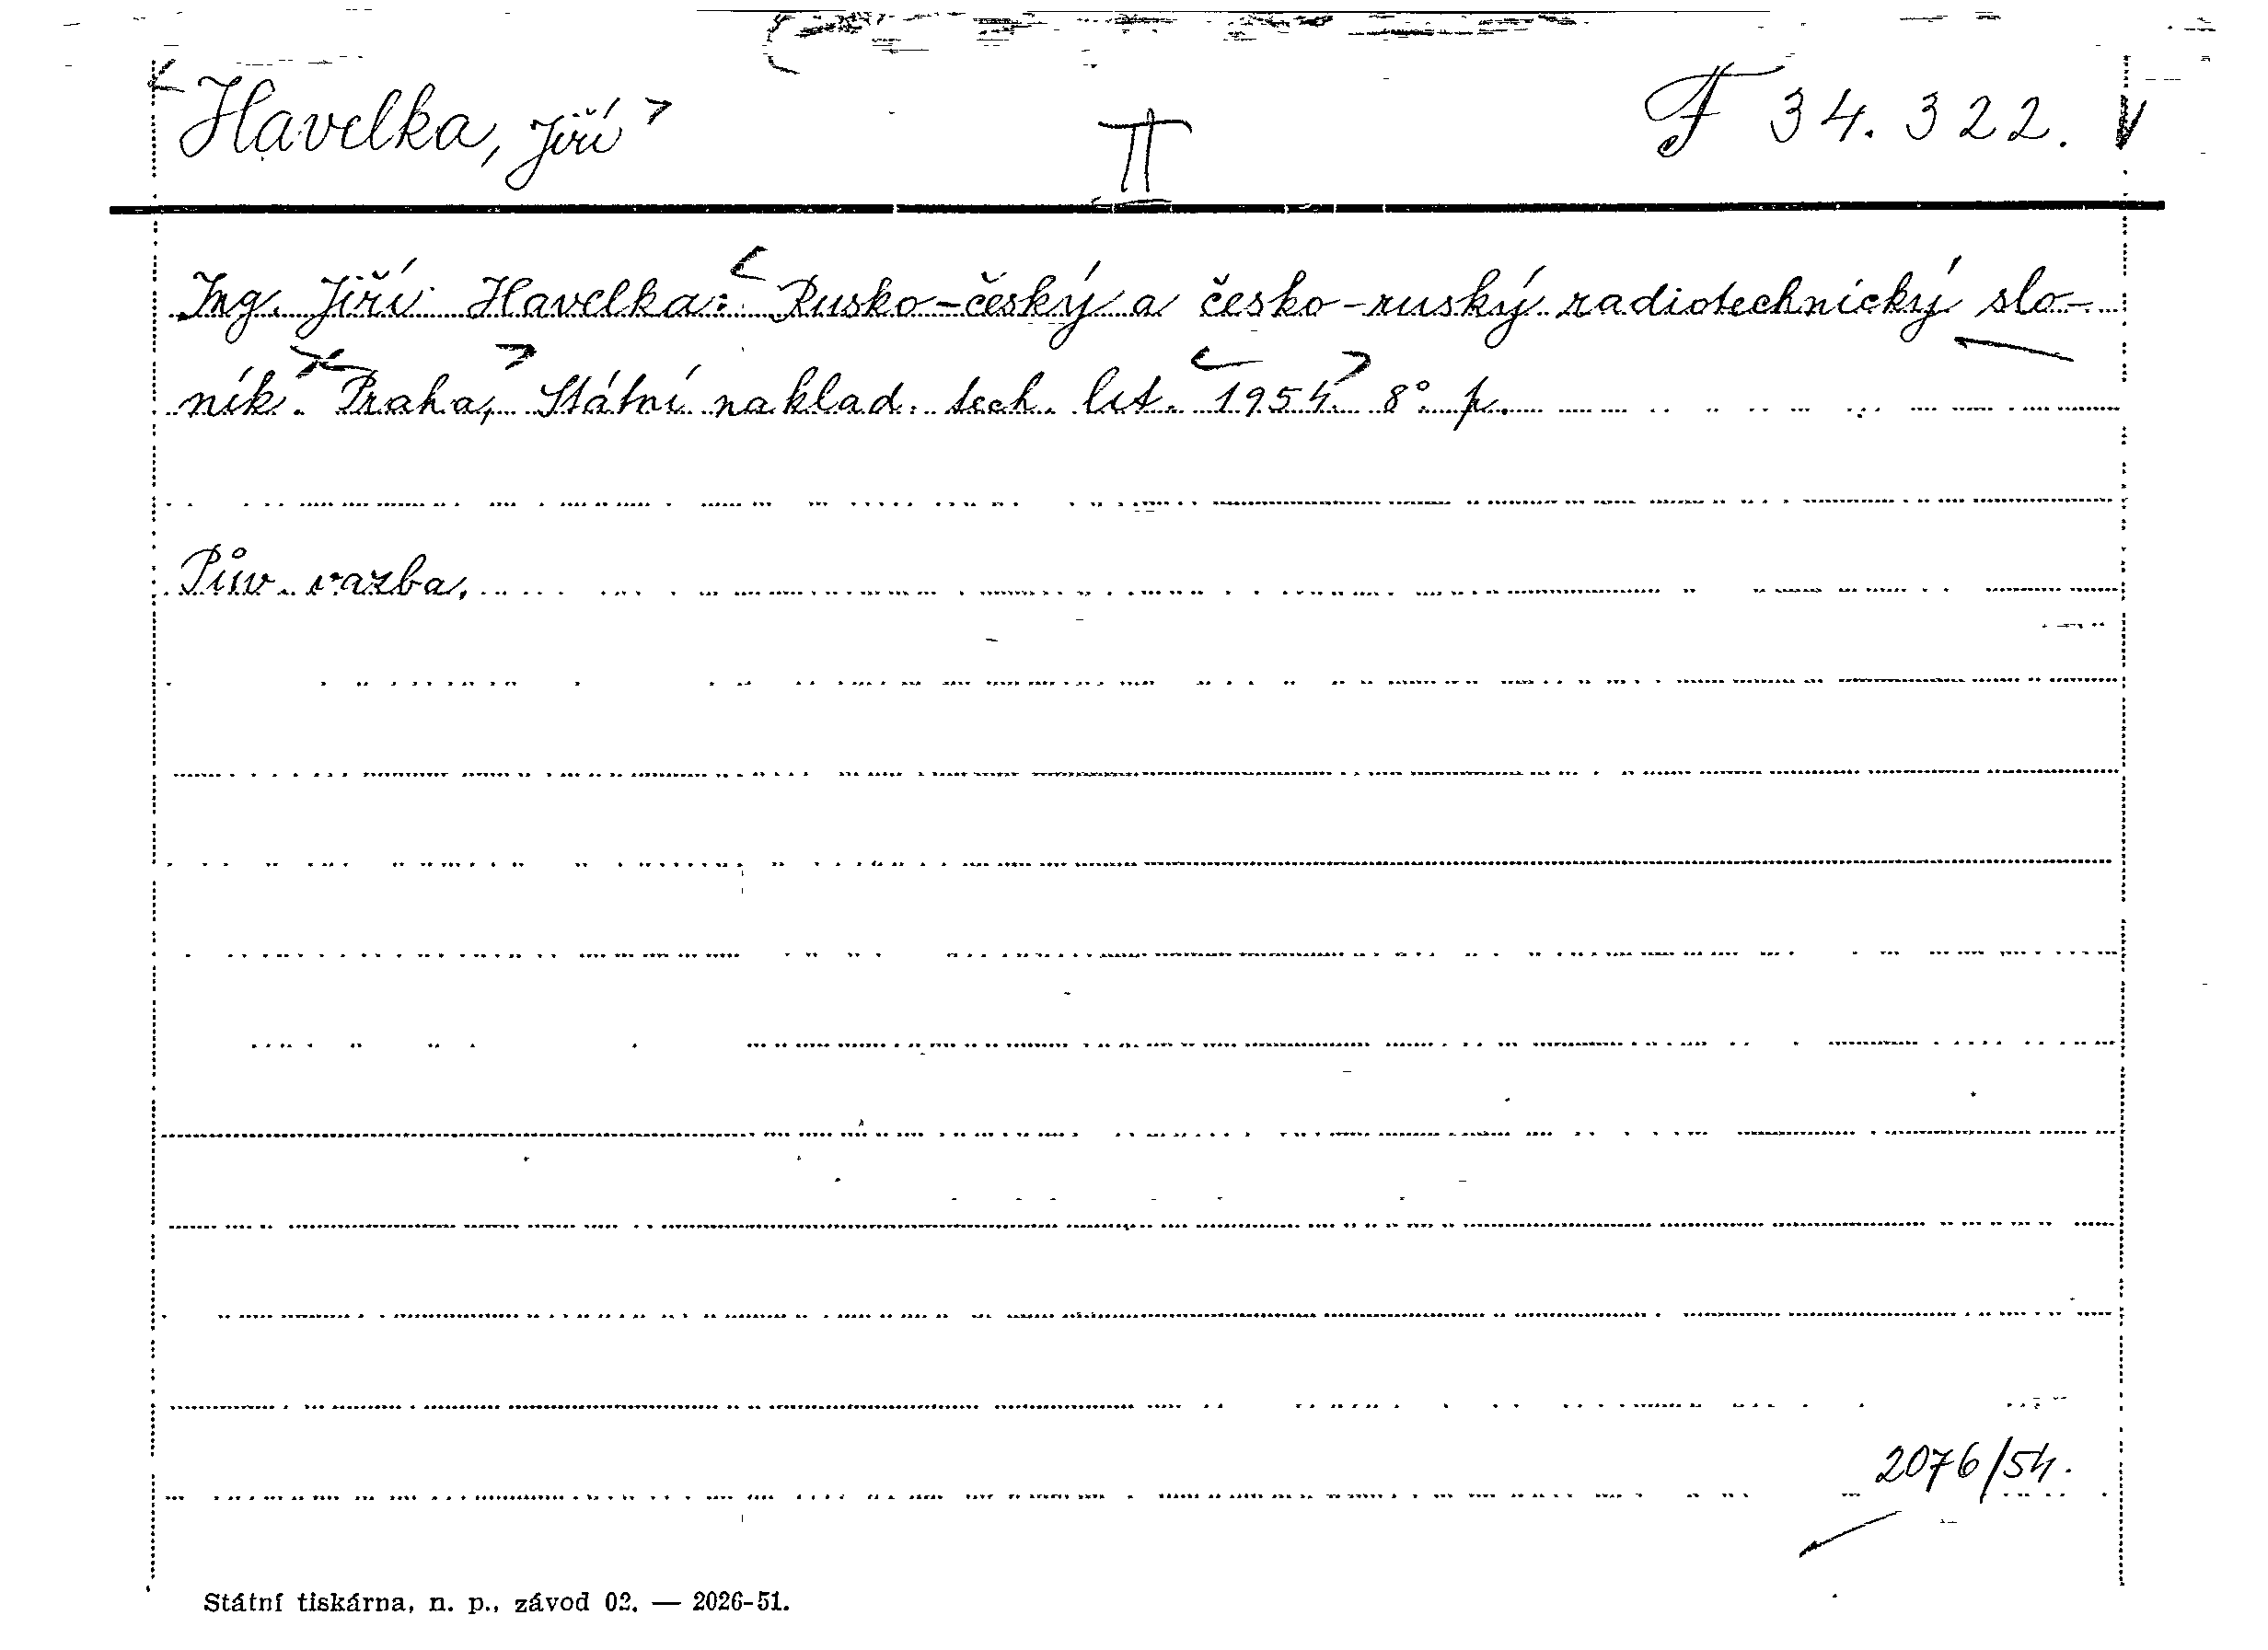 Havelka, Jiří
II
F 34.322.
Ing. Jiří Havelka: Rusko-český a česko-ruský radiotechnický slo-
ník. Praha, Státní naklad. tech. lit. 1954. 8° p.
Pův. vazba.
2076/54.
Státní tiskárna, n. p., závod 02. — 2026-51.